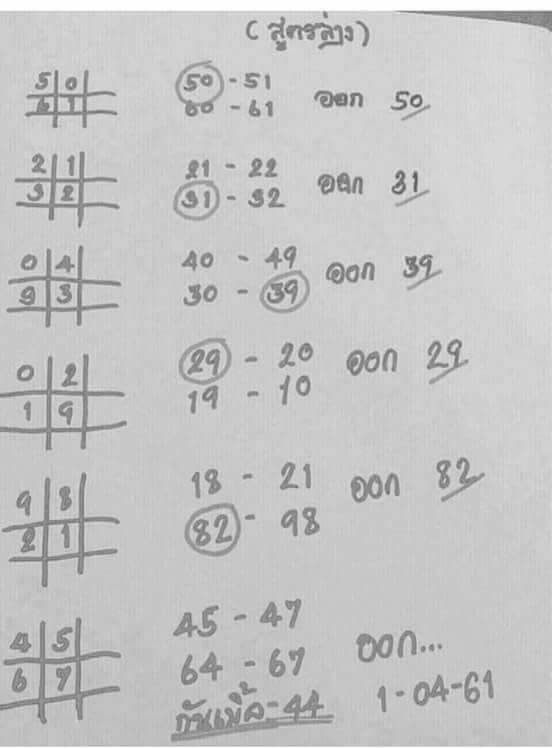 (สูตรล่าง)
5 0 50 - 51
6 1 60 - 61 ออก 50
2 1 21 - 22
3 2 31 - 32 ออก 31
0 4 40 - 49
9 3 30 - 39 ออก 39
0 2 29 - 20 ออก 29
1 9 19 - 10
9 8 18 - 21 ออก 82
2 1 82 - 98
4 5 45 - 47
6 7 64 - 67 ออก...
กันเบิ้ล - 44 1-04-61